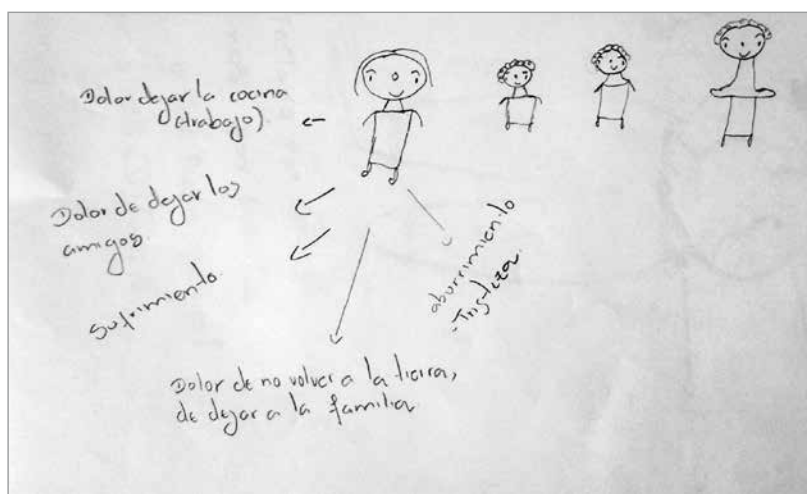 Dolor dejar la cocina
(trabajo)
Dolor de dejar los
amigos.
sufrimiento.
aburrimiento
-Tristeza
Dolor de no volver a la tierra,
de dejar a la familia